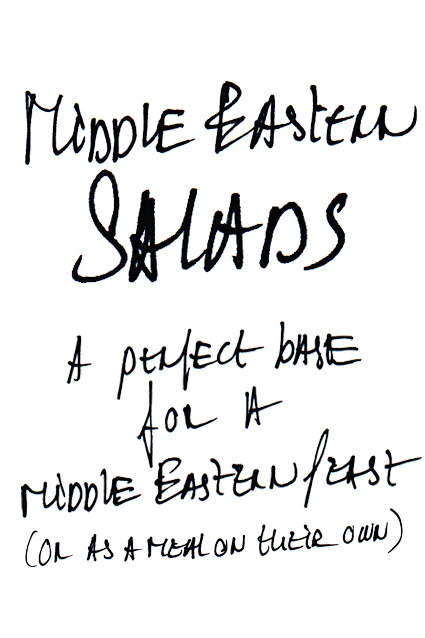 MiDDLE EASTERN
SALADS
A PERfECt bASE
fOR A
MiDDLE EASTERN fEAST
(OR AS A MEAL ON tHEiR OWN)